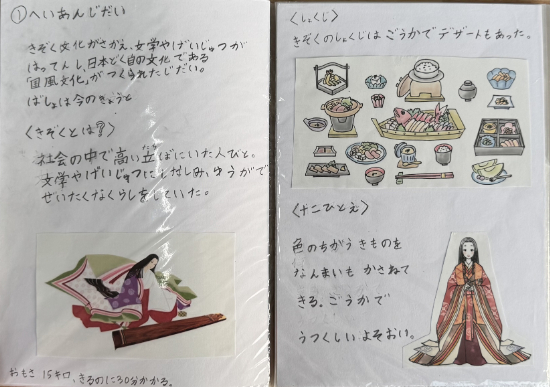 ①へいあんじだい
きぞく文化がさかえ、文学やげいじゅつが
はってんし、日本どく自の文化である
「国風文化」がつくられたじだい。
ばしょは今のきょうと
〈きぞくとは?〉
社会の中で高い立ばにいた人びと。
文学やげいじゅつにしたしみ、ゆうがで
ぜいたくなくらしをしていた。
おもさ 15キロ、きるのに30分かかる。
〈しょくじ〉
きぞくのしょくじはごうかでデザートもあった。
〈十二ひとえ〉
色のちがうきものを
なんまいもかさねて
きる。ごうかで
うつくしいよそおい。